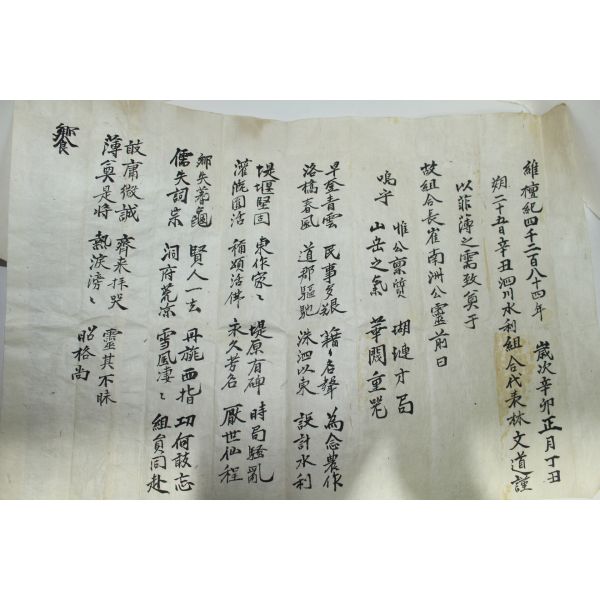 維檀紀四千二百八十四年 歲次辛卯正月丁丑
朔二十五日辛丑泗川水利組合代表林文道謹
以菲薄之需致奠于
故組合長崔南洲公靈前曰
嗚乎 惟公稟質 瑚璉才局
山岳之氣 華閥重器
早登青雲 民事多艱 籍〻名聲 為念農作
洛橋春風 道郡驅馳 洙泗以東 設計水利
堤堰堅固 東作家〻 堤原有碑 時局騷亂
灌漑圓活 稱頌活佛 永久芳名 厭世仙程
鄉失蓍龜 賢人一去 丹旐西指 功何敢忘
儒失詞宗 洞府荒凉 雪風凄〻 組員同赴
敢庸微誠 齊来拜哭 靈其不昧
薄奠是将 熱淚滂〻 昭格尚
饗